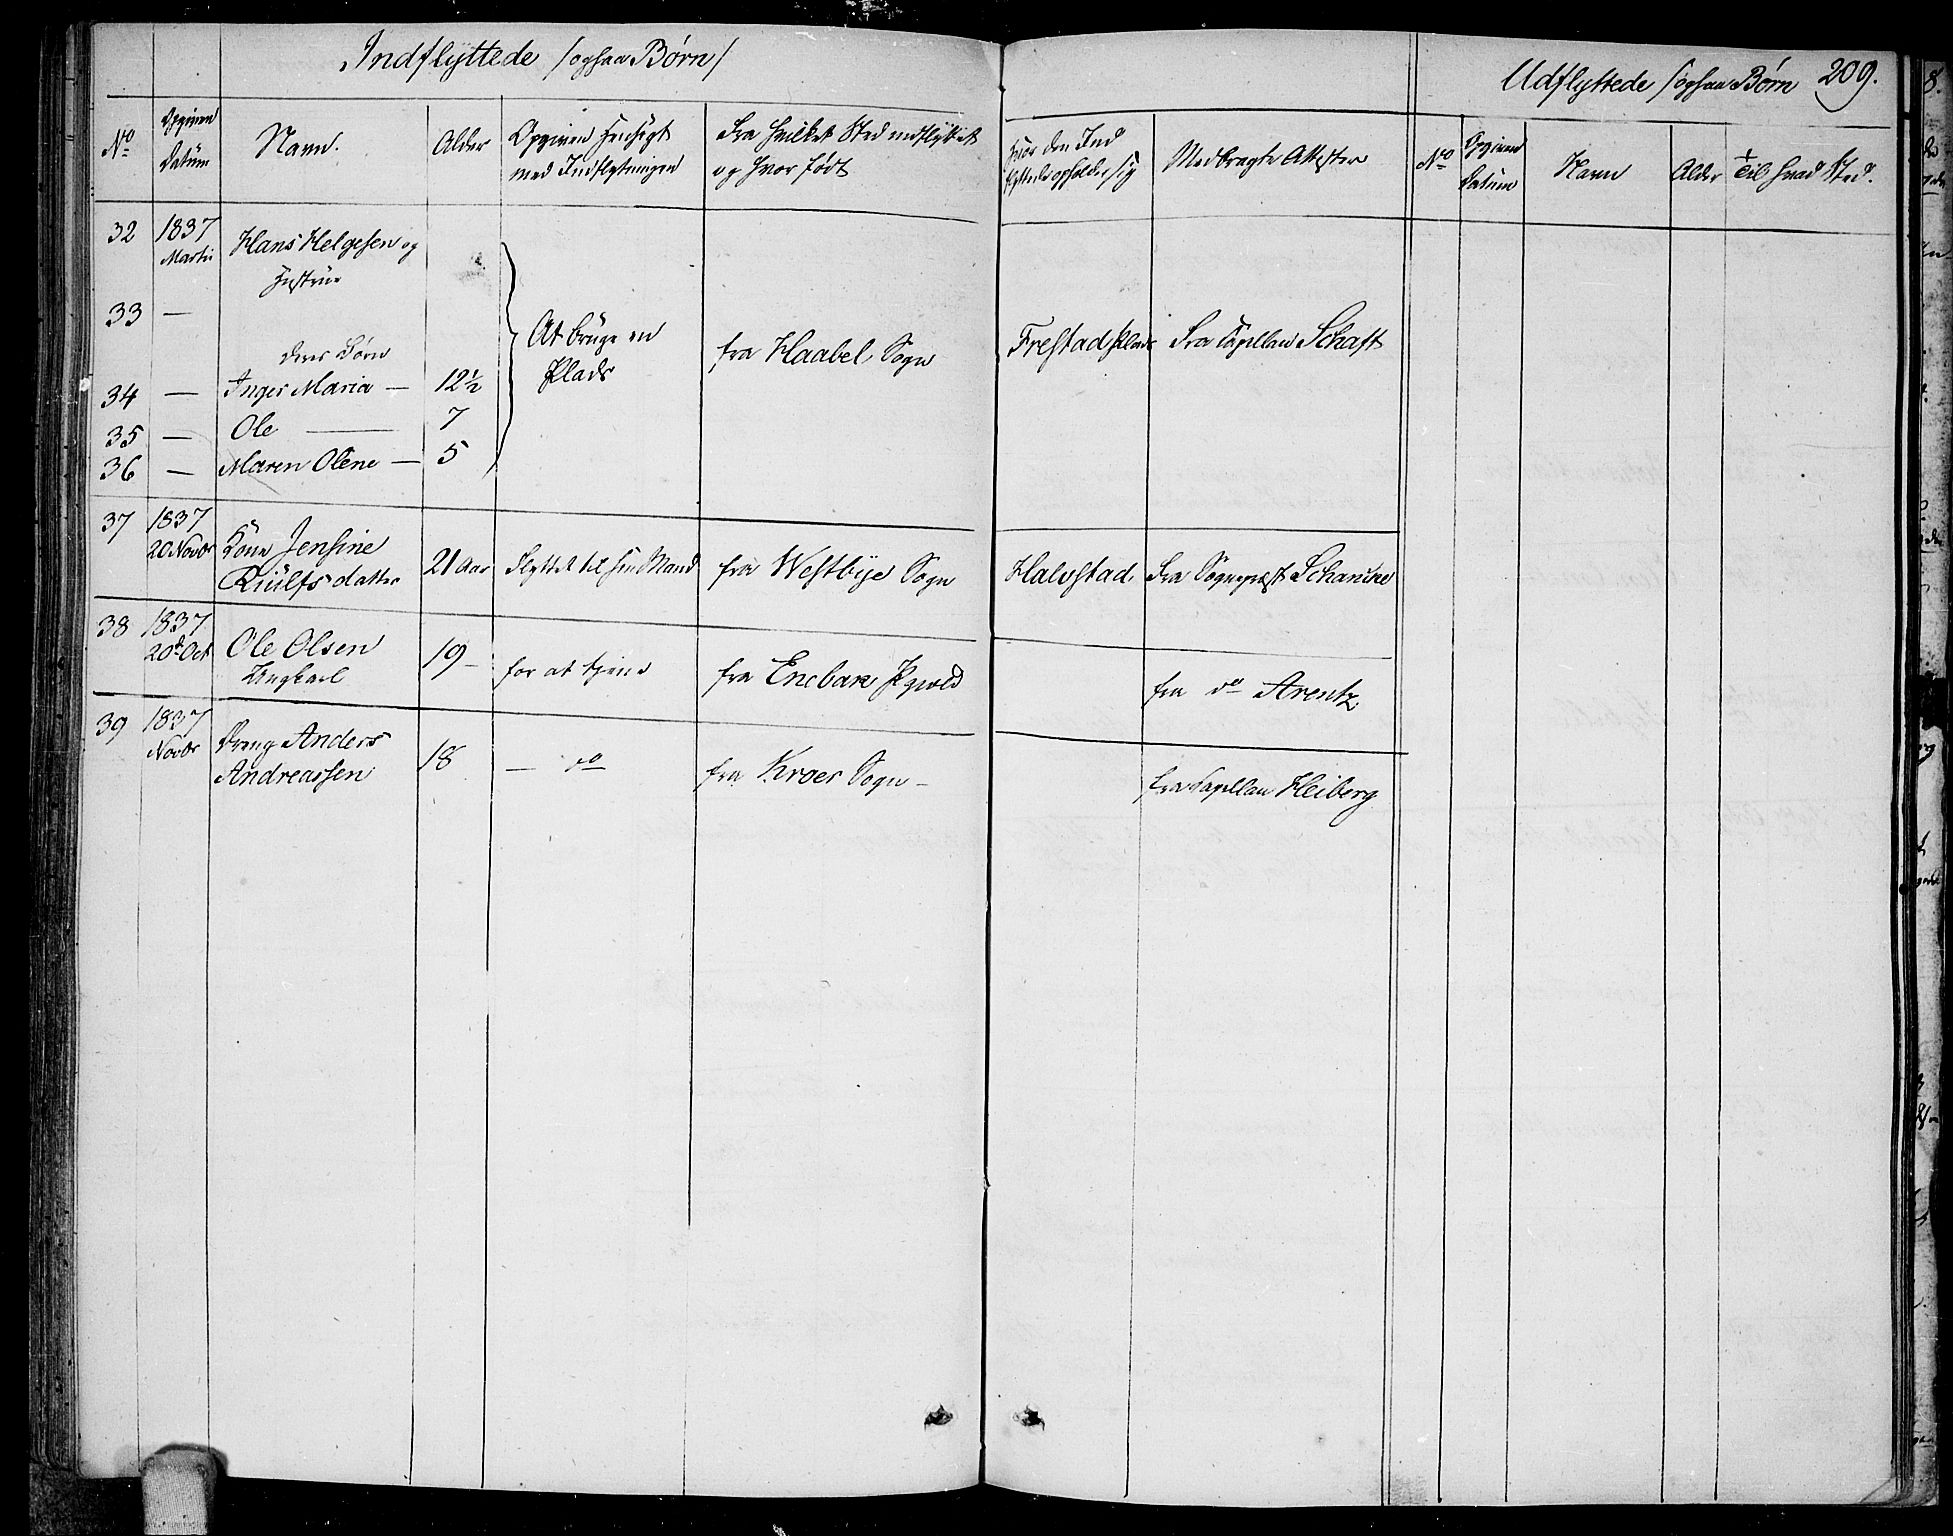 Indflyttede /ogsaa Børn/
No
Opgiven Datum
Navn.
Alder
Opgiven Hensigt
med Indflytningen
Fra hvilket Sted indflyttet
og hvor født
Hvor den Ind
flyttede opholder sig
Medbragte Attester
Udflyttede /ogsaa Børn 209.
No
Opgiven Datum
Navn
Alder
Til hvad Sted.
32 1837 Martii Hans Helgesen og
Hustrue
33 —
deres Børn
34 — Inger Maria — 12½
35 — Ole — 7
36 — Maren Olene — 5
At bruge en
Plads
fra Haabel Sogn
Frestad Plads
Fra Capellan Schaft
37 1837
20 Novbr Kone Jensine
Riülfsdatter 21 Aar Flyttet til sin Mand fra Westbye Sogn Halvstad Fra Sognepræst Schancke
38 1837
20d Oct Ole Olsen
Ungkarl 19 — for at tjene fra Enebak Pgield fra do Arentz
39 1837
Novbr Dreng Anders
Andreassen 18 — do fra Kroer Sogn — fra Capellan Heiberg